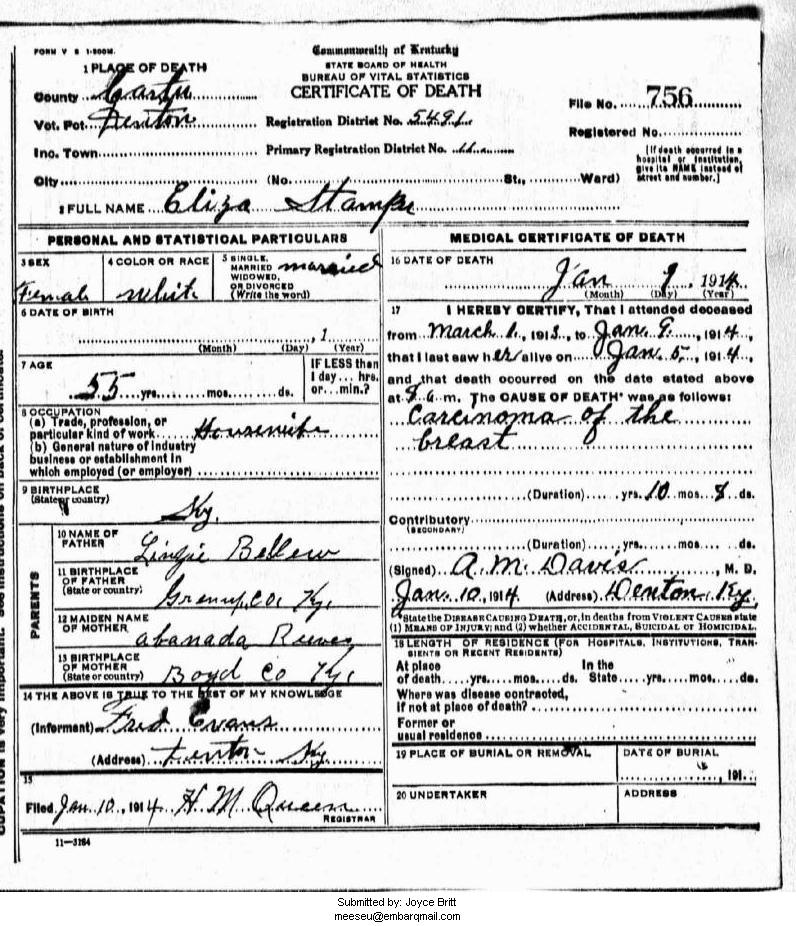 FORM V S 1-500M.
Commonwealth of Kentucky
STATE BOARD OF HEALTH
BUREAU OF VITAL STATISTICS
CERTIFICATE OF DEATH
1 PLACE OF DEATH
County Carter
Vot. Pct. Denton
Inc. Town
City
Registration District No. 5491
Primary Registration District No. 11
(No. St., Ward)
File No. 756
Registered No.
[If death occurred in a
hospital or institution,
give its NAME instead of
street and number.]
2 FULL NAME Eliza Stamper
PERSONAL AND STATISTICAL PARTICULARS
3 SEX
Female
4 COLOR OR RACE
White
5 SINGLE,
MARRIED
WIDOWED,
OR DIVORCED
(Write the word)
married
6 DATE OF BIRTH
, 1
(Month) (Day) (Year)
7 AGE
55 yrs. mos. ds.
IF LESS than
1 day... hrs.
or... min.?
8 OCCUPATION
(a) Trade, profession, or
particular kind of work Housewife
(b) General nature of industry
business or establishment in
which employed (or employer)
9 BIRTHPLACE
(State or country)
Ky.
PARENTS
10 NAME OF
FATHER
Bellew
11 BIRTHPLACE
OF FATHER
(State or country)
Greenup Co. Ky.
12 MAIDEN NAME
OF MOTHER
abanada Reeves
13 BIRTHPLACE
OF MOTHER
(State or country)
Boyd Co Ky.
14 THE ABOVE IS TRUE TO THE BEST OF MY KNOWLEDGE
(Informant) Fred Evans
(Address) Denton Ky.
15
Filed Jan 10, 1914 H. M. Queen
REGISTRAR
11-3184
MEDICAL CERTIFICATE OF DEATH
16 DATE OF DEATH
Jan 9, 1914
(Month) (Day) (Year)
17 I HEREBY CERTIFY, That I attended deceased
from March 1, 1913, to Jan. 9, 1914,
that I last saw her alive on Jan 5, 1914,
and that death occurred on the date stated above
at 9 a. m. The CAUSE OF DEATH* was as follows:
Carcinoma of the
breast
(Duration) yrs. 10 mos. 8 ds.
Contributory
(SECONDARY)
(Duration) yrs. mos. ds.
(Signed) A. M. Davis, M. D.
Jan. 10, 1914 (Address) Denton, Ky,
*State the DISEASE CAUSING DEATH, or, in deaths from VIOLENT CAUSES state
(1) MEANS OF INJURY; and (2) whether ACCIDENTAL, SUICIDAL or HOMICIDAL.
18 LENGTH OF RESIDENCE (FOR HOSPITALS, INSTITUTIONS, TRAN-
SIENTS OR RECENT RESIDENTS)
At place In the
of death yrs. mos. ds. State yrs. mos. ds.
Where was disease contracted,
if not at place of death?
Former or
usual residence
19 PLACE OF BURIAL OR REMOVAL
DATE OF BURIAL
, 191
20 UNDERTAKER
ADDRESS
Submitted by: Joyce Britt
meeseu@embarqmail.com